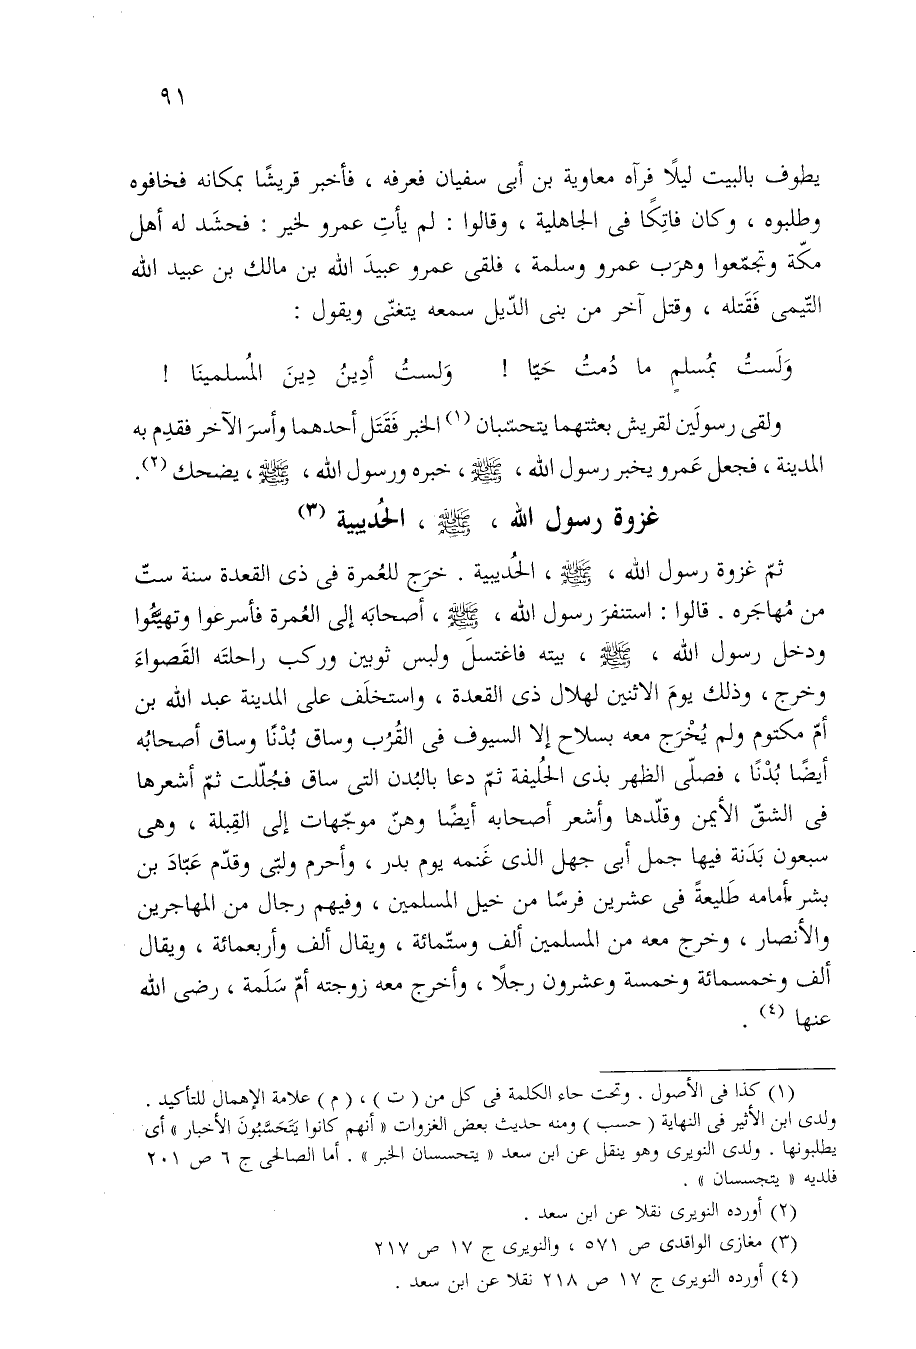 ٩١
يطوف بالبيت ليلًا فرآه معاوية بن أبى سفيان فعرفه ، فأخبر قريشًا بمكانه فخافوه
وطلبوه ، وكان فاتِكًا فى الجاهلية ، وقالوا : لم يأتِ عمرو لخير : فحشَد له أهل
مكّة وتجمّعوا وهرَب عمرو وسلمة ، فلقى عمرو عبيدَ الله بن مالك بن عبيد الله
التّيمى فَقَتله ، وقتل آخر من بنى الدّيل سمعه يتغنّى ويقول :
وَلَستُ بمُسلمٍ ما دُمتُ حَيّا ! وَلستُ أدِينُ دِينَ المُسلمينَا !
ولقى رسولَين لقريش بعثتهما يتحسّبان (١) الخبر فَقَتَل أحدهما وأسرَ الآخر فقدِم به
المدينة ، فجعل عَمرو يخبر رسول الله ، ﷺ ، خبره ورسول الله ، ﷺ ، يضحك (٢).
غزوة رسول الله ، ﷺ ، الحُديبية (٣)
ثمّ غزوة رسول الله ، ﷺ ، الحُديبية . خرَج للعُمرة فى ذى القعدة سنة ستّ
من مُهاجَره . قالوا : استنفرَ رسول الله ، ﷺ ، أصحابَه إلى العُمرة فأسرعوا وتهيّئُوا
ودخل رسول الله ، ﷺ ، بيته فاغتسلَ ولبس ثوبين وركب راحلتَه القَصواءَ
وخرج ، وذلك يومَ الاثنين لهلال ذى القعدة ، واستخلَف على المدينة عبد الله بن
أمّ مكتوم ولم يُخْرَج معه بسلاح إلا السيوف فى القُرُب وساق بُدْنًا وساق أصحابُه
أيضًا بُدْنًا ، فصلّى الظهر بذى الحُليفة ثمّ دعا بالبُدن التى ساق فجُلّلت ثمّ أشعرها
فى الشقّ الأيمن وقلّدها وأشعر أصحابه أيضًا وهنّ موجّهات إلى القِبلة ، وهى
سبعون بَدَنة فيها جمل أبى جهل الذى غَنمه يوم بدر ، وأحرم ولبّى وقدّم عَبّادَ بن
بشر أمامه طَليعةً فى عشرين فرسًا من خيل المسلمين ، وفيهم رجال من المهاجرين
والأنصار ، وخرج معه من المسلمين ألف وستّمائة ، ويقال ألف وأربعمائة ، ويقال
ألف وخمسمائة وخمسة وعشرون رجلًا ، وأخرج معه زوجته أمّ سَلَمة ، رضى الله
عنها (٤) .
(١) كذا فى الأصول . وتحت حاء الكلمة فى كل من ( ت ) ، ( م ) علامة الإهمال للتأكيد .
ولدى ابن الأثير فى النهاية ( حسب ) ومنه حديث بعض الغزوات « أنهم كانوا يَتَحَسَّبُونَ الأخبار » أى
يطلبونها . ولدى النويرى وهو ينقل عن ابن سعد « يتحسسان الخبر » . أما الصالحى ج ٦ ص ٢٠١
فلديه « يتجسسان » .
(٢) أورده النويرى نقلا عن ابن سعد .
(٣) مغازى الواقدى ص ٥٧١ ، والنويرى ج ١٧ ص ٢١٧
(٤) أورده النويرى ج ١٧ ص ٢١٨ نقلا عن ابن سعد .